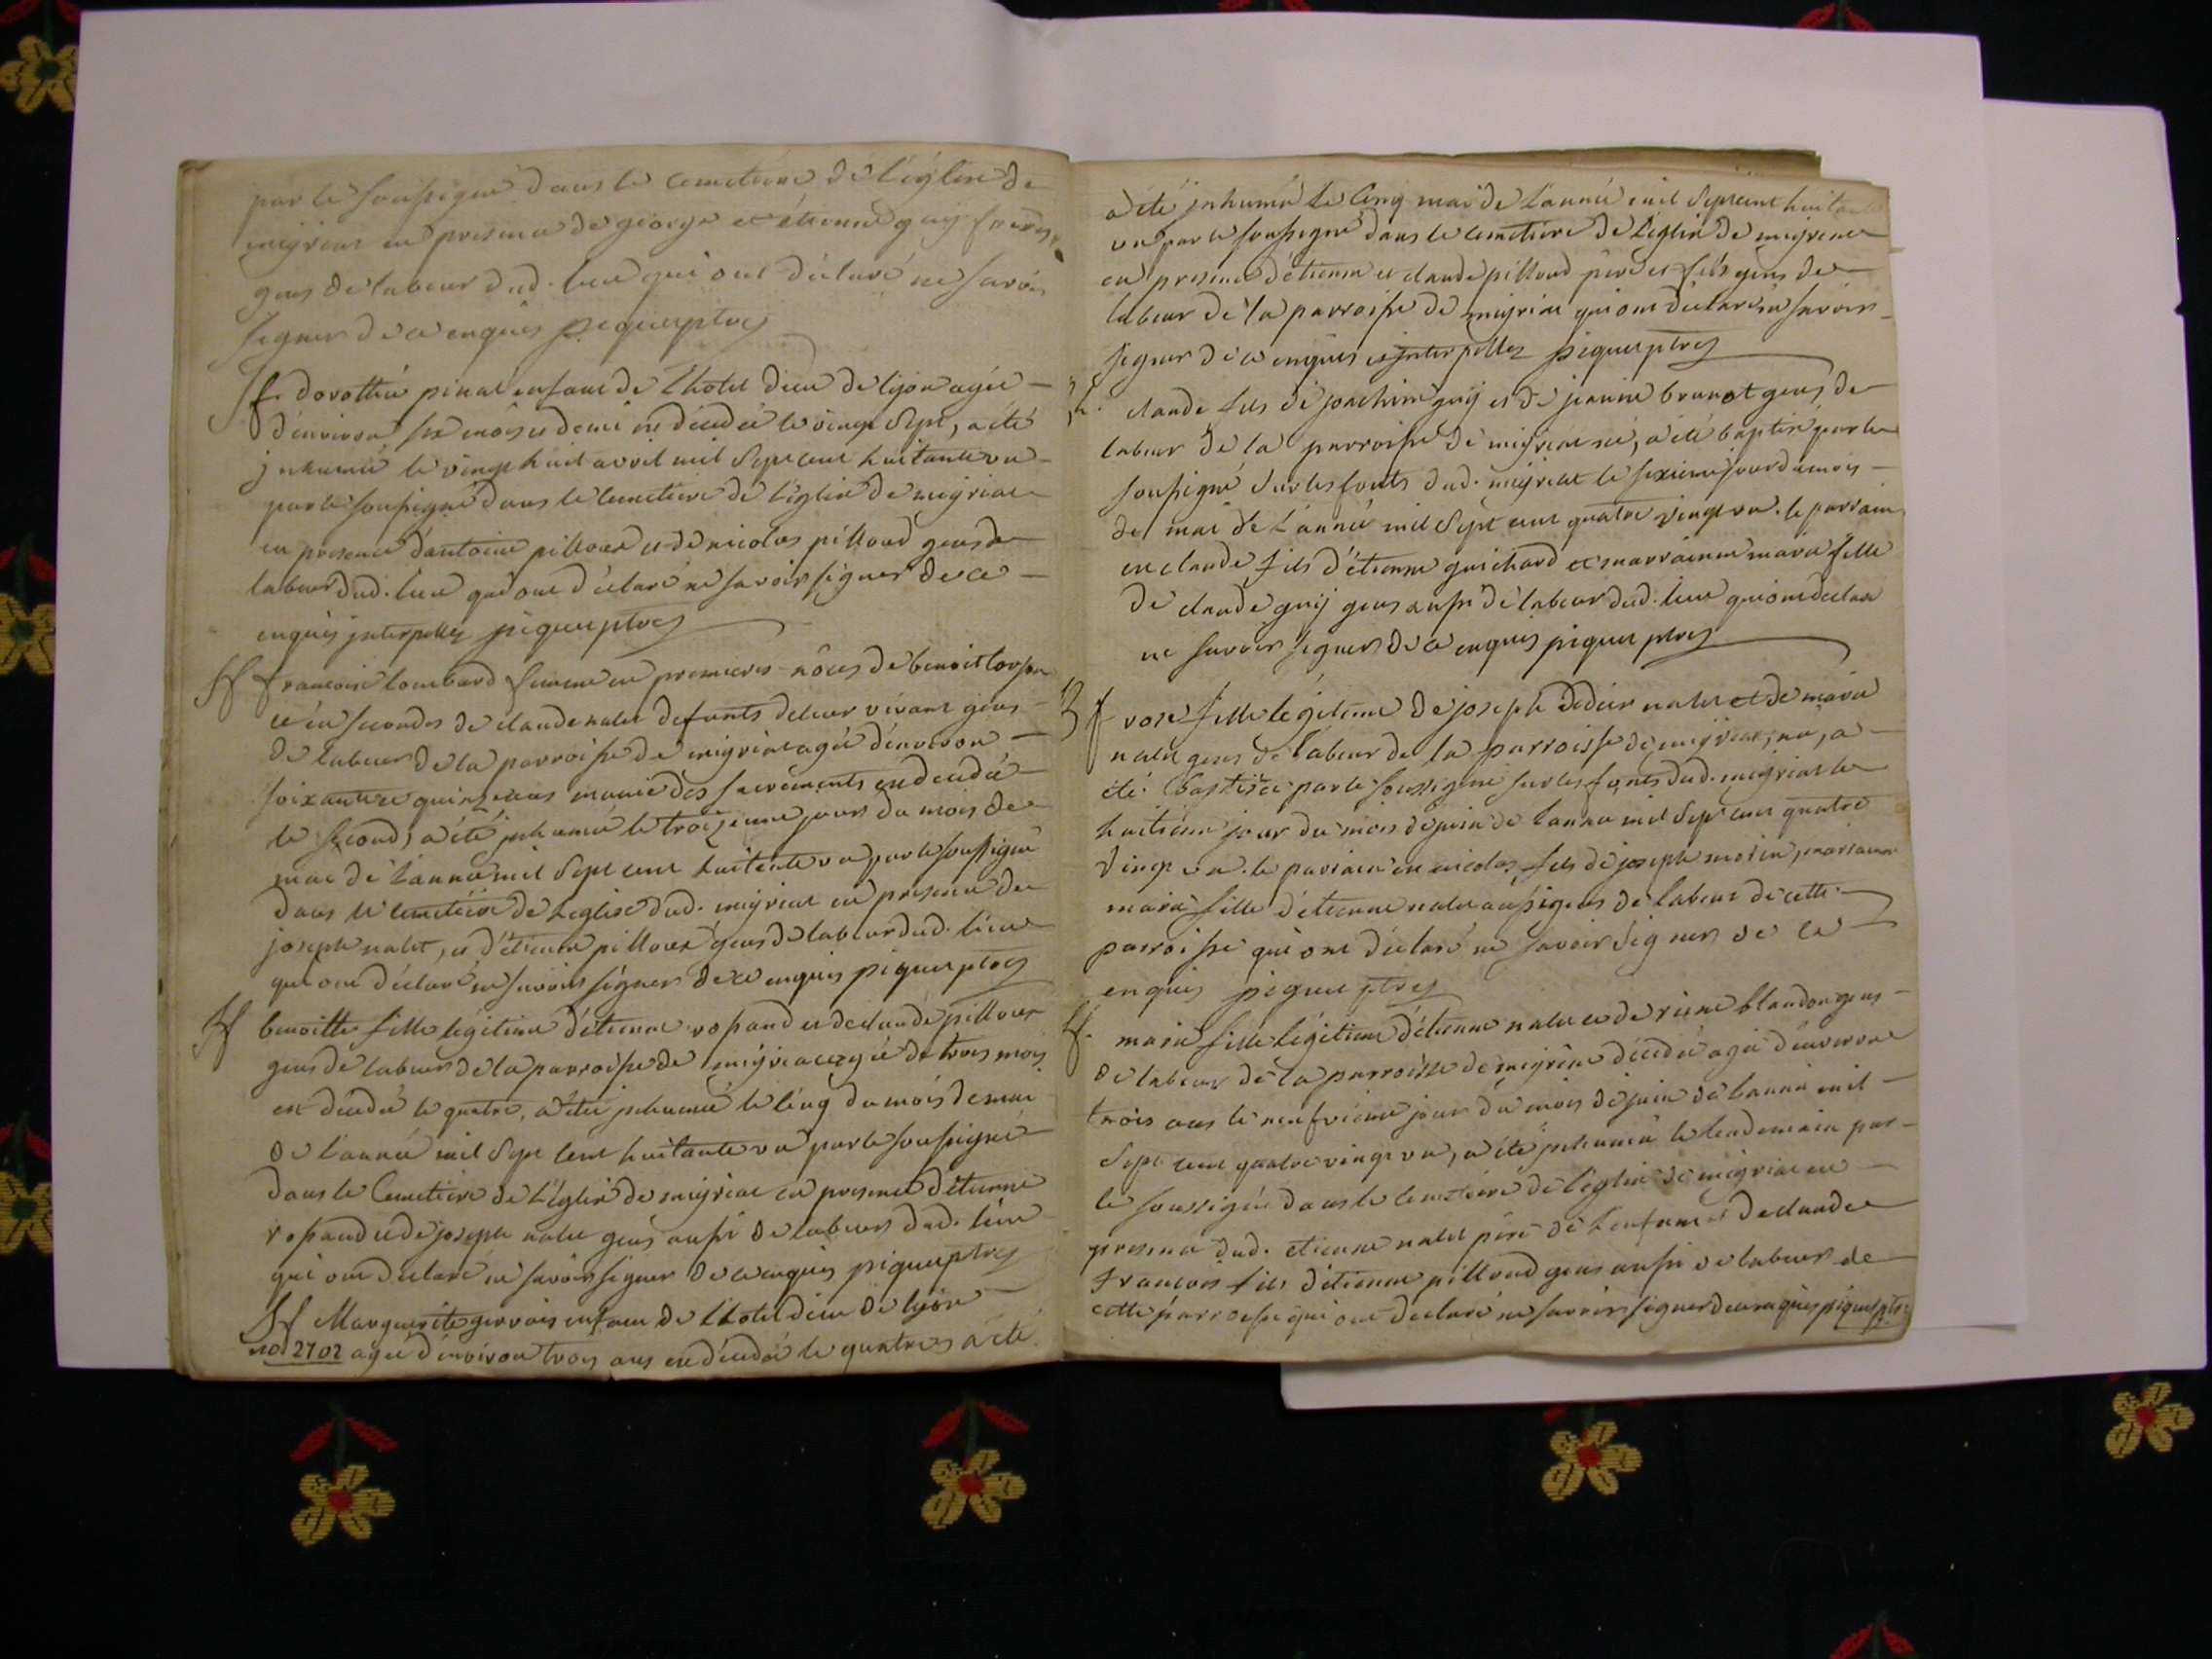 par le soussigné dans le cemetiere de l'église de
meyriat en presence de george et étienne guy freres
gens de labeur dud. lieu qui ont déclaré ne savoir
signer de ce enquis piquet ptre
ff dorothée pinal enfant de l'hotel dieu de lyon agée
d'environ six mois et demi est décedée le vingt sept, a été
inhumée le vingt huit avril mil sept cent huitante un
par le soussigné dans le cemetiere de l'église de meyriat
en presence d'antoine pilloud et de nicolas pilloud gens de
labeur dud. lieu qui ont déclaré ne savoir signer de ce
enquis interpellez piquet ptre
ff francoise lombard femme en premieres nôces de benoit
et en secondes de claude nalet defunts de leur vivant gens
de labeur de la parroisse de meyriat agée d'environ
soixante et quinze ans munie des sacrements est decedée
le second, a été inhumée le troisieme jour du mois de
mai de l'année mil sept cent huitante un par le soussigné
dans le cemetiere de l'eglise dud. meyriat en presence de
joseph nalet, et d'étienne pilloud gens de labeur dud. lieu
qui ont déclaré ne savoir signer de ce enquis piquet ptre
ff benoitte fille légitime d'étienne ropand et de claude pilloud
gens de labeur de la parroisse de meyriat agée de trois mois
est décedée le quatre, a été inhumée le cinq du mois de mai
de l'année mil sept cent huitante un par le soussigné
dans le cemetiere de l'église de meyriat en presence d'étienne
ropand et de joseph nalet gens aussi de labeur dud. lieu
qui ont declaré ne savoir signer de ce enquis piquet ptre
ff Marguerite gervais enfant de l'hotel dieu de lyon
no 2702 agée d'environ trois ans est décedée le quatre a été
a été inhumé le cinq mai de l'année mil sept cent huitante
un par le soussigné dans le cemetiere de l'église de meyriat
en presence d'étienne et claude pilloud père et fils gens de
labeur de la parroisse de meyriat qui ont déclaré ne savoir
signer de ce enquis et interpellez piquet ptre
claude fils de joachim guy et de jeanne brunot gens de
labeur de la parroisse de meyriat né, a été baptisé par le
soussigné sur les fonts dud. meyriat le sixieme jour du mois
de mai de l'année mil sept cent quatre vingt un. le parrain
est claude fils d'étienne guichard et marraine marie fille
de claude guy gens aussi de labeur dud. lieu qui ont declaré
ne savoir signer de ce enquis piquet ptre
B f rose fille légitime de joseph didier nalet et de marie
nalet gens de labeur de la parroisse de meyriat, née, a
été baptisée par le soussigné sur les fonts dud. meyriat le
huitieme jour du mois de juin de l'année mil sept cent quatre
vingt un. le parrain est nicolas fils de joseph morin, marraine
marie fille d'étienne nalet aussi gens de labeur de cette
parroisse qui ont déclaré ne savoir signer de ce
enquis piquet ptre
ff. marie fille légitime d'étienne nalet et de blandon gens
de labeur de la parroisse de meyriat décedée agée d'environ
trois ans le neufvieme jour du mois de juin de l'année mil
sept cent quatre vingt un, a été inhumée le lendemain par
le soussigné dans le cemetiere de l'église de meyriat en
presence dud. etienne nalet père de l'enfant et de claude
francois fils d'étienne pilloud gens aussi de labeur de
cette parroisse qui ont declaré ne savoir signer de ce enquis piquet ptre